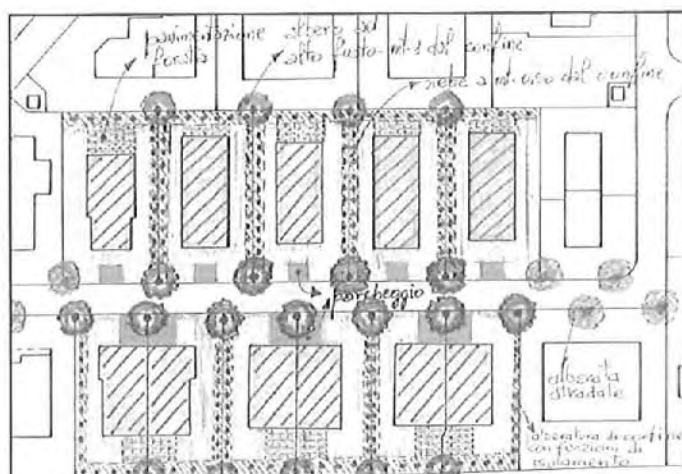 pavimentazione
forata
albero ad
alto fusto - mt. 3 dal confine
siepe a mt. 0,50 dal confine
parcheggio
alberata
stradale
alberatura di confine
con funzioni di
isolamento